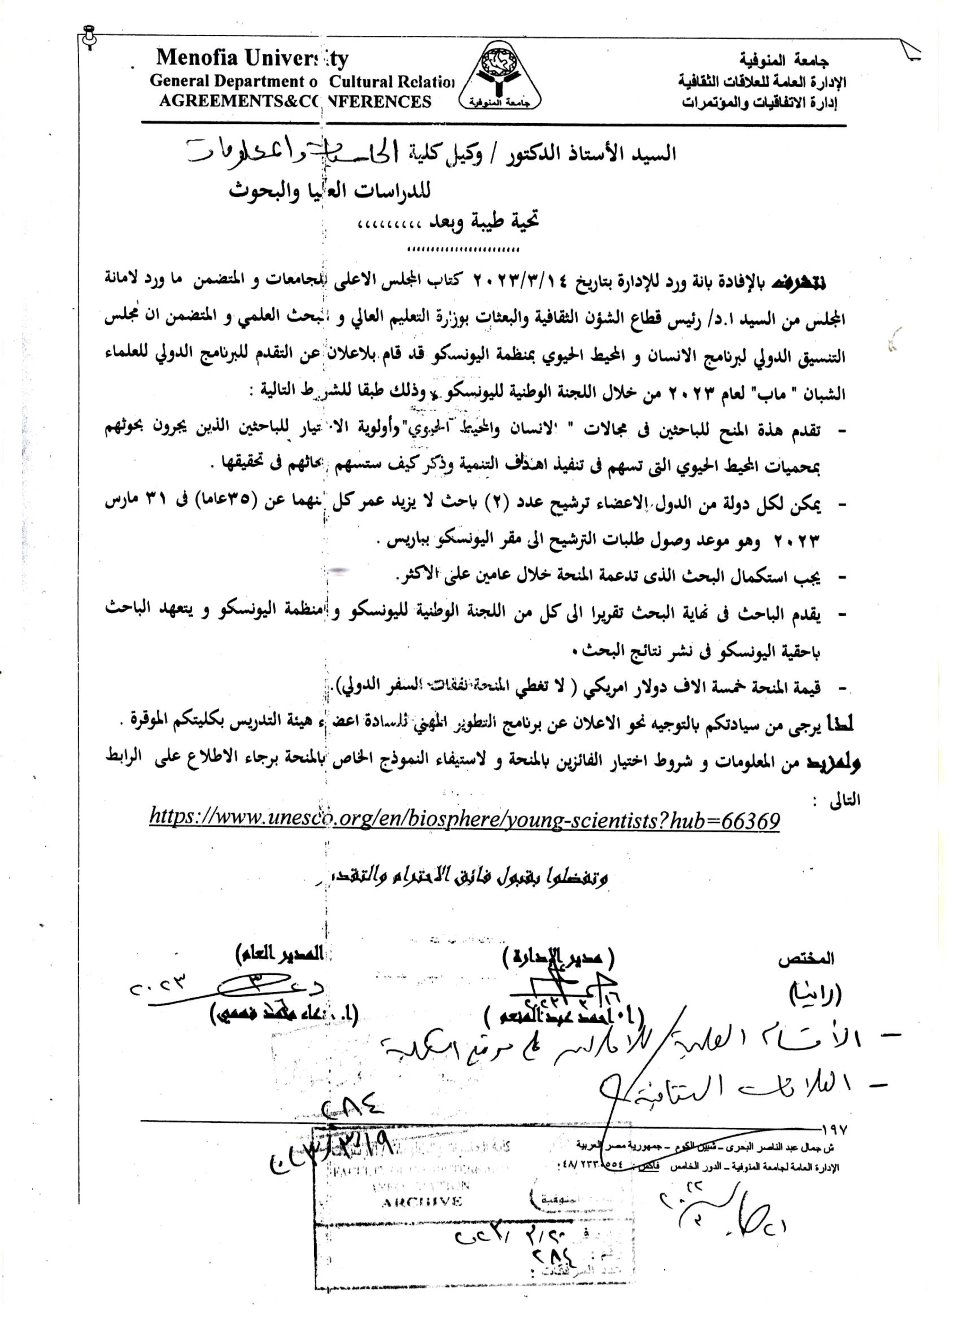 Menofia University
General Department of Cultural Relation
AGREEMENTS&CONFERENCES
جامعة المنوفية
جامعة المنوفية
الإدارة العامة للعلاقات الثقافية
إدارة الاتفاقيات والمؤتمرات
السيد الأستاذ الدكتور / وكيل كلية الحاسبات والمعلومات
للدراسات العليا والبحوث
تحية طيبة وبعد ،،،،،،،،،
نتشرف بالإفادة بانة ورد للإدارة بتاريخ ٢٠٢٣/٣/١٤ كتاب المجلس الاعلى للجامعات و المتضمن ما ورد لامانة
المجلس من السيد ا.د/ رئيس قطاع الشؤن الثقافية والبعثات بوزارة التعليم العالي و البحث العلمي و المتضمن ان مجلس
التنسيق الدولي لبرنامج الانسان و المحيط الحيوي بمنظمة اليونسكو قد قام بلاعلان عن التقدم للبرنامج الدولي للعلماء
الشبان " ماب" لعام ٢٠٢٣ من خلال اللجنة الوطنية لليونسكو ، وذلك طبقا للشرط التالية :
- تقدم هذة المنح للباحثين فى مجالات " الانسان والمحيط الحيوي" وأولوية الاختيار للباحثين الذين يجرون بحوثهم
بمحميات المحيط الحيوي التى تسهم فى تنفيذ اهداف التنمية وذكر كيف ستسهم بحاثهم فى تحقيقها .
- يمكن لكل دولة من الدول الاعضاء ترشيح عدد (٢) باحث لا يزيد عمر كل منهما عن (٣٥عاما) فى ٣١ مارس
٢٠٢٣ وهو موعد وصول طلبات الترشيح الى مقر اليونسكو بباريس .
- يجب استكمال البحث الذى تدعمة المنحة خلال عامين على الاكثر.
- يقدم الباحث فى نهاية البحث تقريرا الى كل من اللجنة الوطنية لليونسكو و منظمة اليونسكو و يتعهد الباحث
باحقية اليونسكو فى نشر نتائج البحث.
- قيمة المنحة خمسة الاف دولار امريكي ( لا تغطي المنحة نفقات السفر الدولي).
لذا يرجى من سيادتكم بالتوجيه نحو الاعلان عن برنامج التطوير المهني للسادة اعضاء هيئة التدريس بكليتكم الموقرة .
ولمزيد من المعلومات و شروط اختيار الفائزين بالمنحة و لاستيفاء النموذج الخاص بالمنحة برجاء الاطلاع على الرابط
التالى :
https://www.unesco.org/en/biosphere/young-scientists?hub=66369
وتفضلوا بقبول فائق الاحترام والتقدير
المختص
( مدير الإدارة )
المدير العام)
(رانيا)
٢٠٢٣
(أ. أحمد عبد المنعم )
- الأقسام العلمية / للاعلان على موقع الكلية
- العلاقات الثقافية
٢٨٤
١٩٧
ش جمال عبد الناصر البحرى – شبين الكوم – جمهورية مصر العربية
الإدارة العامة لجامعة المنوفية – الدور الخامس فاكس :
ARCHIVE
٢٠٢٣/٣/٢٠
٢٨٤
عدد المرفقات :